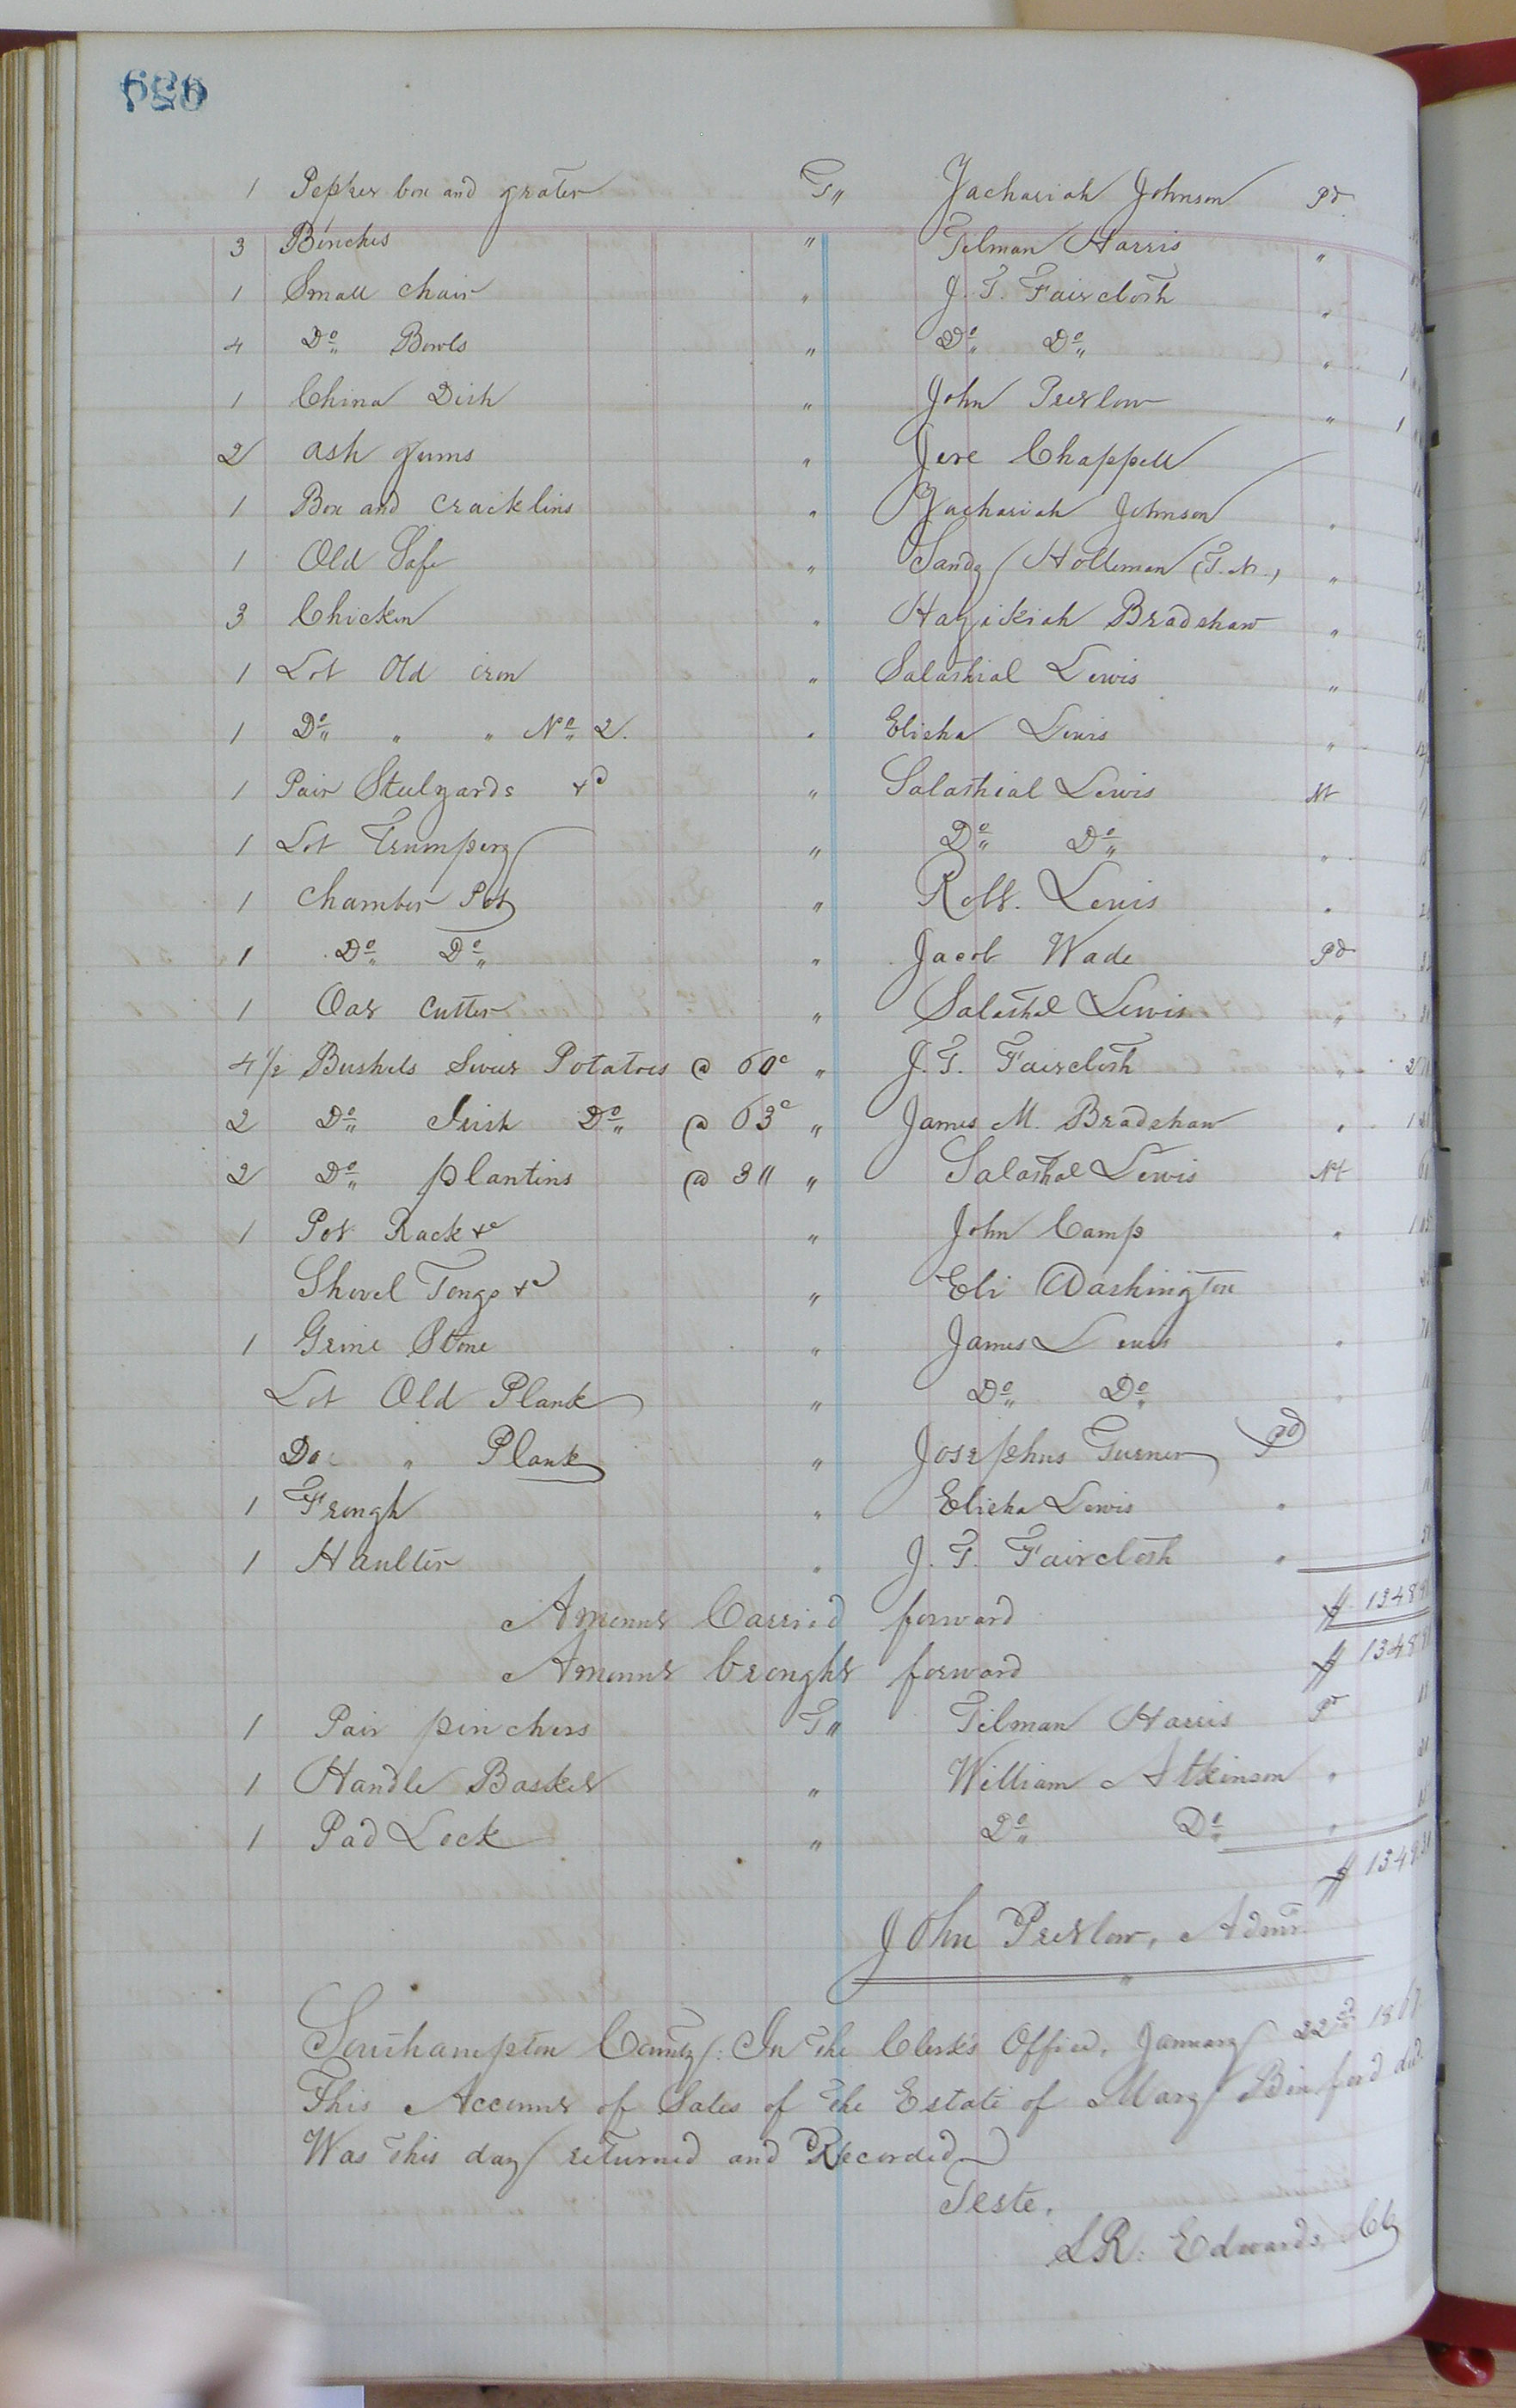 659
1 Pepper box and grater T" Zachariah Johnson Pd
3 Benches " Tilman Harris "
1 Small chair " J. T. Faircloth "
4 Do Bowls " Do Do "
1 China Dish " John Pretlow " 1
2 ash gums " Jere Chappell 1
1 Box and cracklins " Zachariah Johnson "
1 Old Safe " Sandy Holleman (F.N.) "
3 Chicken " Hazikiah Bradshaw "
1 Lot Old iron " Salathial Lewis "
1 Do " " No 2. " Elisha Lewis "
1 Pair Steelyards &c " Salathial Lewis Nt
1 Lot Trumpery " Do Do "
1 Chamber Pot " Robt. Lewis "
1 Do Do " Jacob Wade Pd
1 Oat Cutter " Salathal Lewis "
4 1/2 Bushels Sweet Potatoes @ 60c " J. T. Faircloth "
2 Do Irish Do @ 63c " James M. Bradshaw "
2 Do plantins @ 3" " Salathal Lewis Nt
1 Pot Rack &c " John Camp "
Shovel Tongs &c " Eli Washington
1 Grine Stone " James Lewis "
Lot Old Plank " Do Do "
Do " Plank " Josephus Turner Pd
1 Trough " Elisha Lewis "
1 Haulter " J. T. Faircloth "
Amount Carried forward $ 1348
Amount brought forward $ 1348
1 Pair pinchers T" Tilman Harris Pd
1 Handle Basket " William Atkinson "
1 Pad Lock " Do Do "
$ 1349
John Pretlow, Admr.
Southampton County: In the Clerk's Office, January 22nd 186
This Account of Sales of the Estate of Mary Binford decd.
Was this day returned and Recorded
Teste.
L R. Edwards, Clk